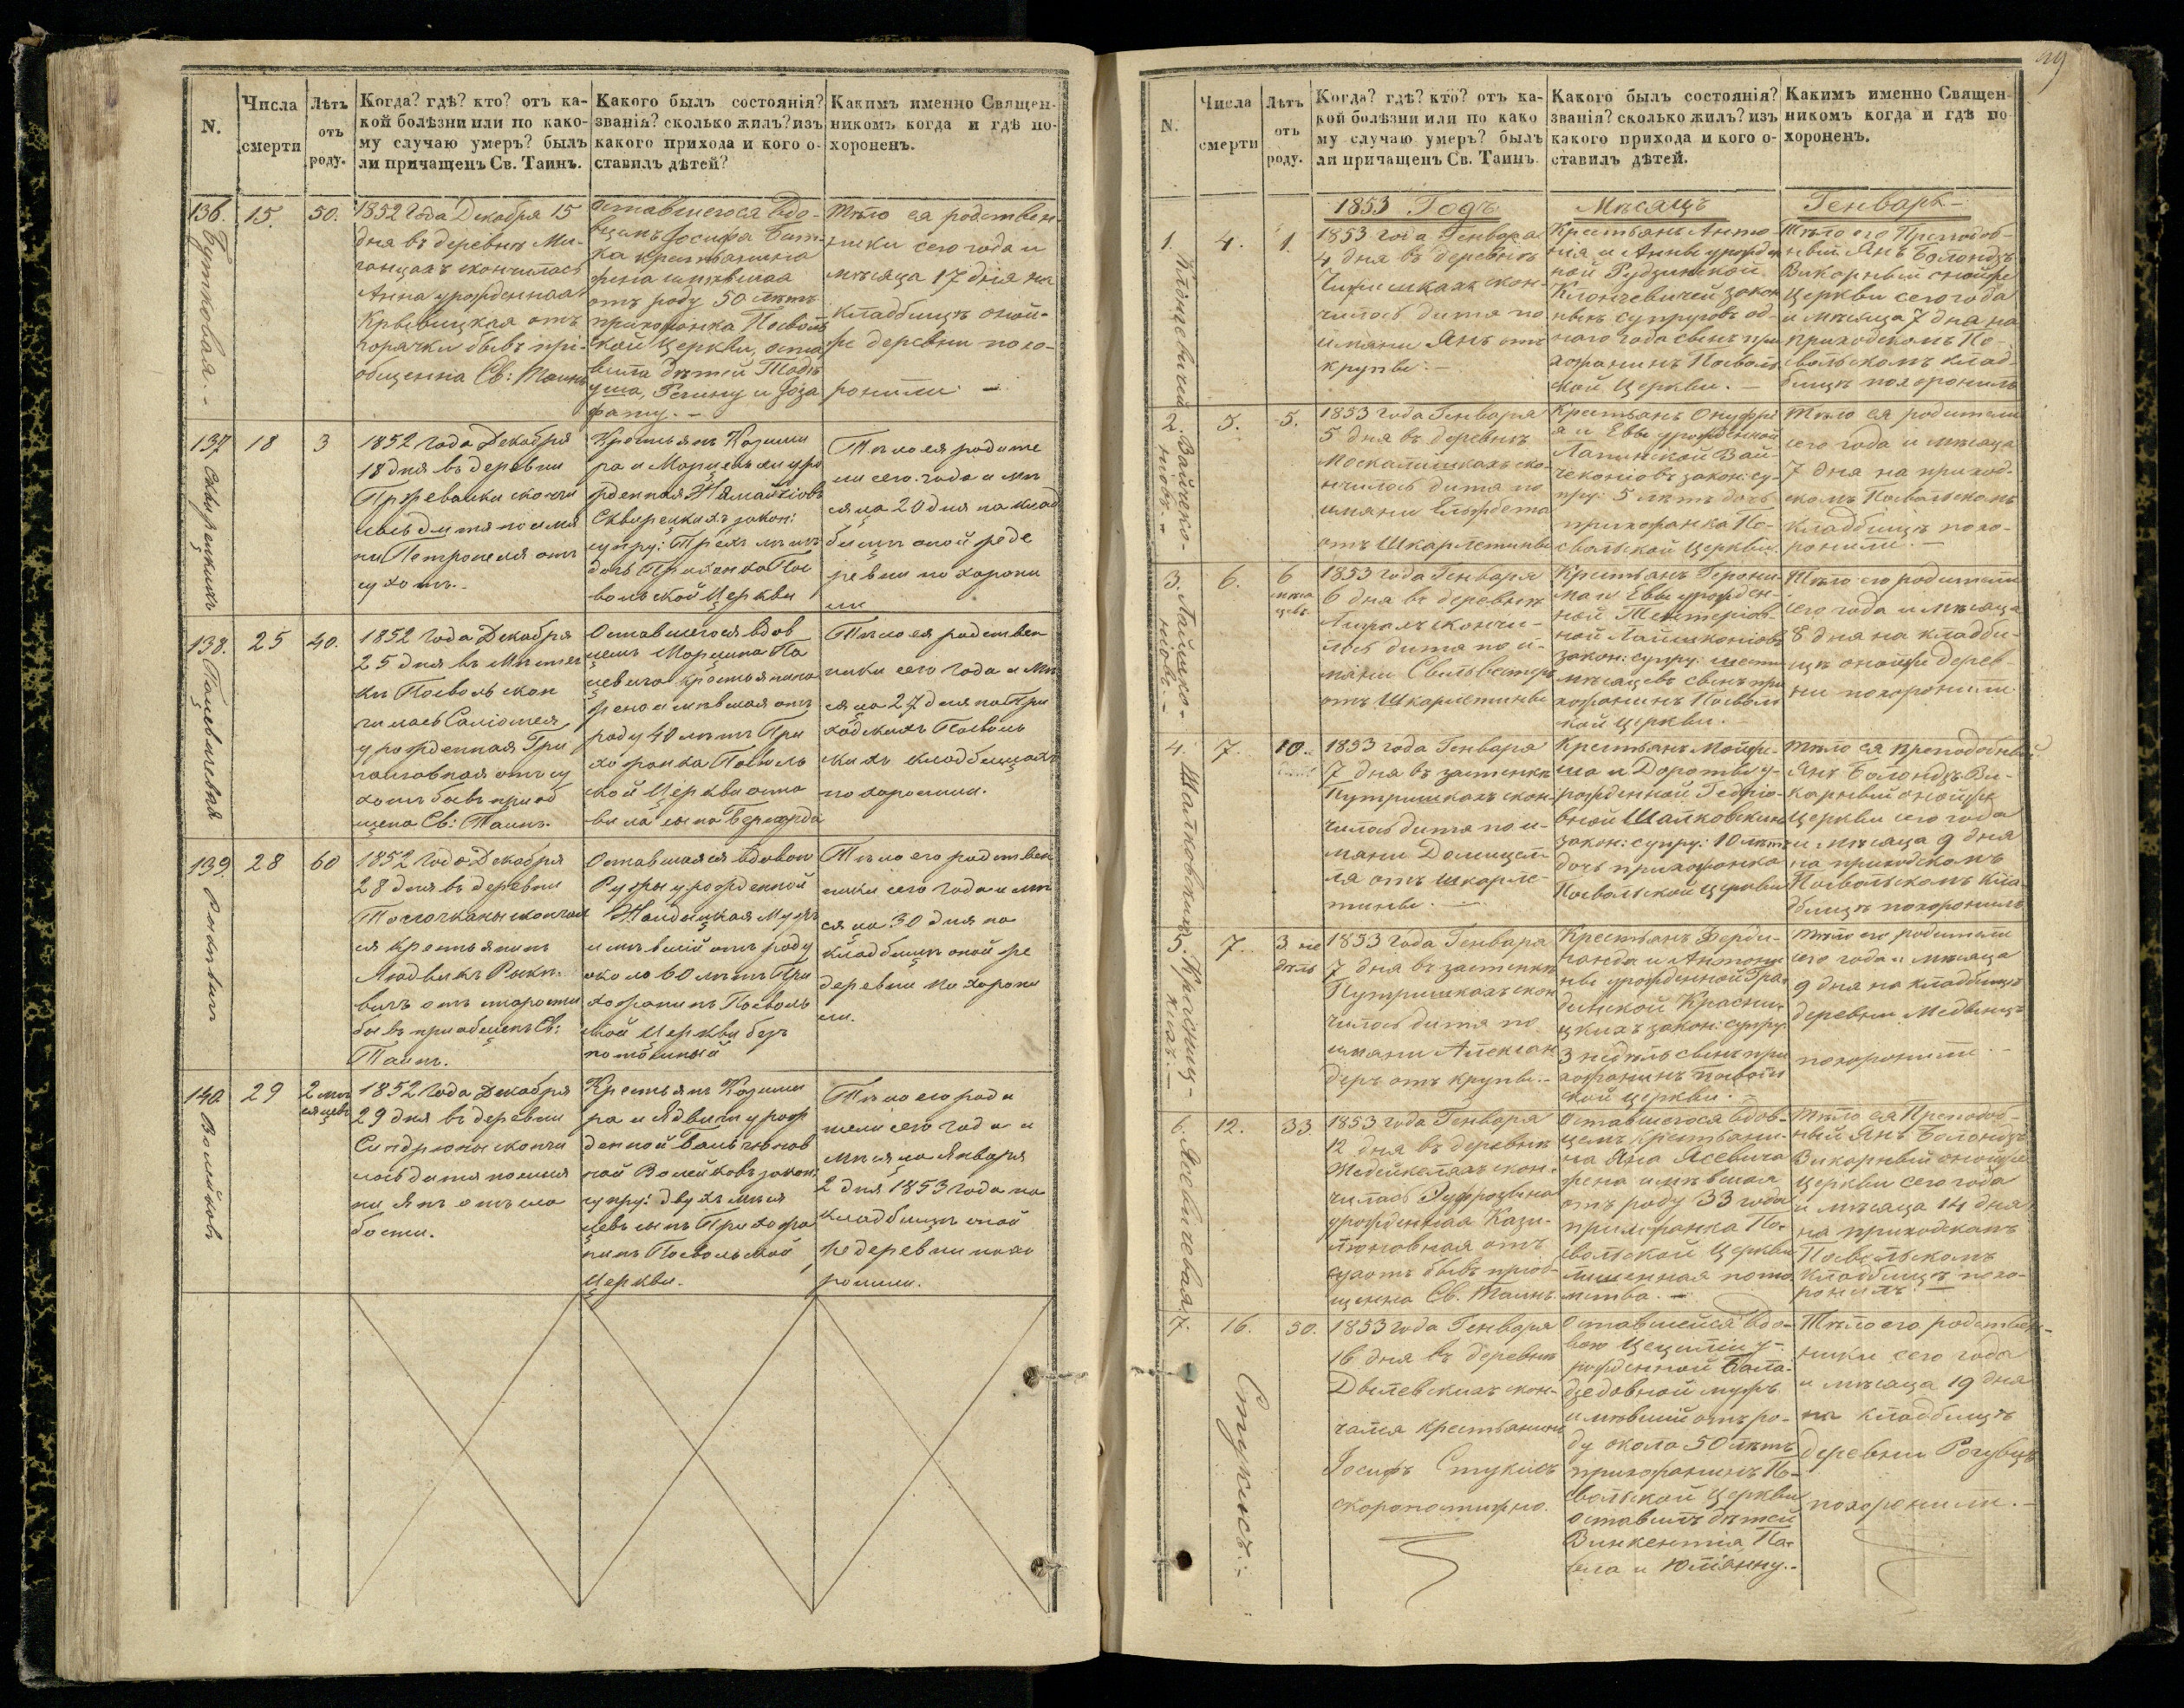 N.
Числа смерти
Лѣтъ отъ роду.
Когда? гдѣ? кто? отъ ка-
кой болѣзни или по како-
му случаю умеръ? былъ
ли причащенъ Св. Таинъ.
Какого былъ состоянія?
званія? сколько жилъ? изъ
какого прихода и кого о-
ставилъ дѣтей?
Какимъ именно Священ-
никомъ когда и гдѣ по-
хороненъ.
136.
15.
50.
1852 Года Декабря 15
дня въ деревнѣ Ми-
скончилась
Анна урожденная
отъ
горячки бывъ прі-
общенна Св: Таинъ
оставшегося вдо-
вцемъ Іосифа Бут-
ка крестьянина
жена имѣвшая
отъ роду 50 лѣтъ
прихожанка Посволь
ской Церкви, оста
вила дѣтей Тадѣ
уша, Регину и Юза
фату. -
Тѣло ея родствен-
ники сего года и
мѣсяца 17 дня на
кладбищѣ оной-
же деревни похо-
ронили. -
Бутковая. -
137
18
3
1852 года Декабря
18 дня въ деревни
скончи
лось дитя по имя
ни Петронеля отъ
сухотъ. -
Крестьянъ Казими
ра и уро
жденная
закон:
супру: Трехъ лѣтъ
дочь Прихожанка Пос
вольской Церкви
Тѣло ея родите
ли сего года и мѣ
сяца 20 дня на клад
бищѣ оной же де
ревни похорони
ли
138.
25
40.
1852 года Декабря
25 дня въ Мѣстеч
кѣ Посволь скон
чилась Саломея
урожденная Гри
отъ су
хотъ бывъ приоб
щена Св: Таинъ.
Оставшегося вдов
цемъ Марцина Па
цевича крестьянина
жена имѣвшая отъ
роду 40 лѣтъ При
хожанка Посволь
ской Церкви оста
вила сына Бернарда
Тѣло ея родствен
ники сего года и Мѣ
сяца 27 дня на При
ходскихъ Посволь
скихъ кладбищахъ
похоронили.
139.
28
60
1852 года Декабря
28 дня въ деревни
скончал
ся крестьянинъ
Людвикъ
вичъ отъ старости
бывъ приобщенъ Св:
Таинъ.
Оставшаяся вдовою
Руфы урожденной
Мужъ
имѣвшій отъ роду
около 60 лѣтъ При
хожанинъ Посволь
ской Церкви безъ
потомный
Тѣло его родствен
ники сего года и мѣ
сяца 30 дня на
кладбищѣ оной же
деревни похорони
ли.
140.
29
2 мѣ
сяцевъ
1852 года Декабря
29 дня въ деревни
скончи
лось дитя по имя
ни Янъ отъ сла
бости.
Крестьянъ Казими
ра и Ядвиги урож
денной
ной закон:
супру: двухъ мѣся
цевъ сынъ Прихожа
нинъ Посвольской
Церкви.
Тѣло его роди
тели сего года и
мѣсяца Января
2 дня 1853 года на
кладбищѣ оной
же деревни похо
ронили.
N.
Числа смерти
Лѣтъ отъ роду.
Когда? гдѣ? кто? отъ ка-
кой болѣзни или по како
му случаю умеръ? былъ
ли причащенъ Св. Таинъ.
Какого былъ состоянія?
званія? сколько жилъ? изъ
какого прихода и кого о-
ставилъ дѣтей.
Какимъ именно Священ-
никомъ когда и гдѣ по
хороненъ.
1853 Годъ
Мѣсяцъ
Генварь -
1.
4.
1.
1853 года Генваря
4 дня въ деревнѣ
скон-
чилось дитя по
имяни Янъ отъ
крупы. -
Крестьянъ Анто-
нія и Анны урожден
ной Рудзинской
закон
ныхъ супруговъ од-
ного года сынъ при
хожанинъ Посволь
ской Церкви. -
Тѣло его Преподоб-
ный Янъ Болондзъ
Викарный оной же
Церкви сего года
и мѣсяца 7 дня на
приходскомъ По-
свольскомъ клад-
бищѣ похоронилъ
2.
5.
5.
1853 года Генваря
5 дня въ деревнѣ
Москалишкахъ ско-
нчилось дитя по
имяни Ельжбета
отъ Шкарлятины
Крестьянъ Онуфрі
я и Евы урожденной
Лапинской Вай-
чеконіовъ закон: су-
пру: 5 лѣтъ дочь
прихожанка По-
свольской Церкви.
Тѣло ея родители
сего года и мѣсяца
7 дня на приход-
скомъ Посвольскомъ
кладбищѣ похо-
ронили. -
3.
6.
6
мѣся
цевъ
1853 года Генваря
6 дня въ деревнѣ
скончи-
лось дитя по и-
мяни Сильвестеръ
отъ Шкарлятины
Крестьянъ Герони-
ма и Евы урожден-
ной
ной
закон: супру: шести
мѣсяцевъ сынъ при
хожанинъ Посволь
ской Церкви. -
Тѣло его родители
сего года и мѣсяца
8 дня на кладби-
щѣ оной же дерев-
ни похоронили.
4.
7.
10.
1853 года Генваря
7 дня въ застенкѣ
Путришкахъ скон-
чилось дитя по и-
мяни Домицел-
ля отъ шкарля-
тины. -
Крестьянъ Мойже-
ша и Доротеи у-
рожденной
вной Шалковскихъ
закон: супру: 10 лѣтъ
дочь прихожанка
Посвольской Церкви
Тѣло ея Преподобный
Янъ Болондзъ Ви-
карный оной же
Церкви сего года
и мѣсяца 9 дня
на приходскомъ
Посвольскомъ кла-
дбищѣ похоронилъ
5.
7.
3 не
дѣль
1853 года Генваря
7 дня въ застенкѣ
Путришкахъ скон
чилось дитя по
имяни Алексан
деръ отъ крупы. -
Крестьянъ Ферди-
нанда и Антони-
ны урожденной
Красни-
цкихъ закон: супру:
3 недѣль сынъ при
хожанинъ Посволь
ской Церкви.
Тѣло его родители
сего года и мѣсяца
9 дня на кладбищѣ
деревни
похоронили. -
6.
12.
33.
1853 года Генваря
12 дня въ деревнѣ
скон-
чилась Эуфрозина
урожденная Кази-
отъ
сухотъ бывъ приоб-
щенна Св. Таинъ.
Оставшегося вдов-
цемъ крестьяни-
на Яна Ясевича
жена имѣвшая
отъ роду 33 года
прихожанка По-
свольской Церкви
лишенная пото
мства. -
Тѣло ея Преподоб-
ный Янъ Болондзъ
Викарный оной же
Церкви сего года
и мѣсяца 14 дня
на приходскомъ
Посвольскомъ
кладбищѣ похо-
ронилъ. -
Ясевичевая.
7.
16.
50.
1853 года Генваря
16 дня въ деревнѣ
скон-
чался крестьянинъ
Іосифъ Стукисъ
скоропостижно.
Оставшейся вдо-
вою Цециліи у-
рожденной
мужъ
имѣвшій отъ ро-
ду около 50 лѣтъ
прихожанинъ По-
свольской Церкви
оставилъ дѣтей
Винкентія, Па-
вла и Юліянну. -
Тѣло его родствен-
ники сего года
и мѣсяца 19 дня
на кладбищѣ
деревни
похоронили. -
Стукисъ. -